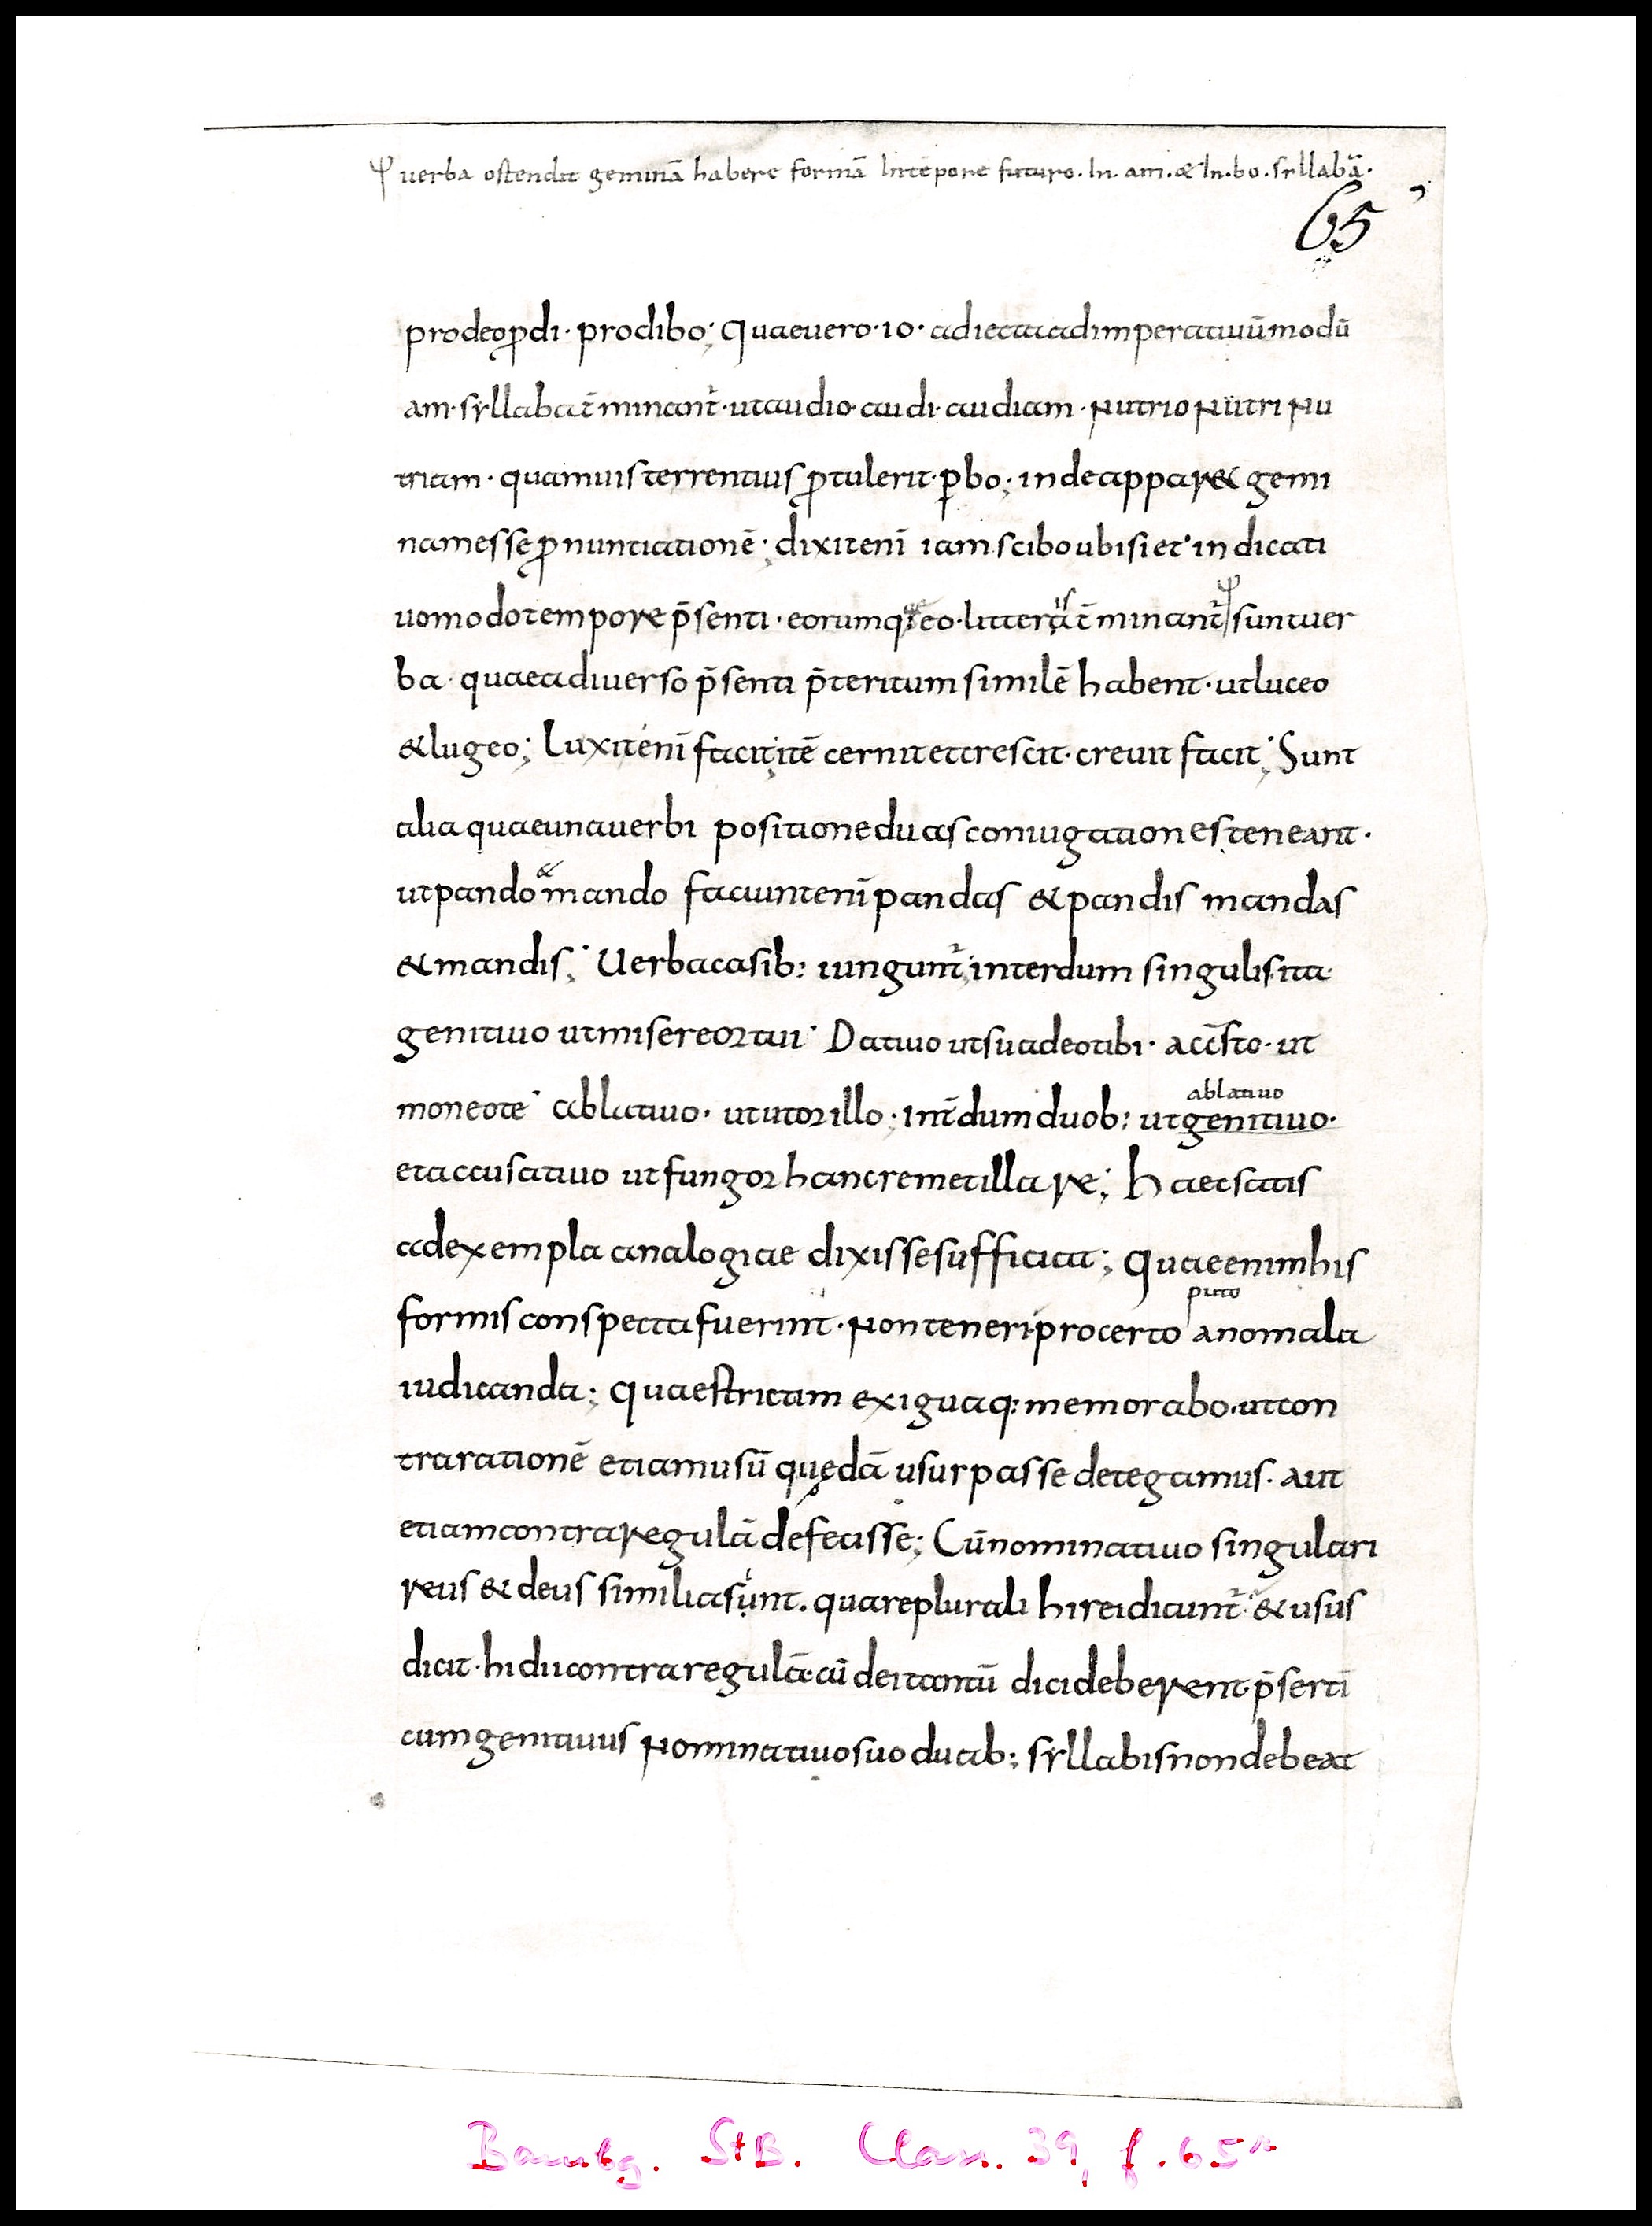 ψ uerba ostendit geminā habere formā Intēpore futuro. In. am. & In. bo. syllabā.
65
prodeo ꝓdi · prodibo; Quae uero · io · adiecta ad imperatiuū modū
am · syllaba t̄minant᷑ · ut audio · audi · audiam · Nutrio Nutri Nu
triam · quamuis terrentius ꝓtulerit · ꝑbo; inde appar& gemi
nam esse ꝓnuntiationē; dixit enī iam scibo ubi siet · in dicati
uo modo tempore p̄senti · eorum q̄ eo · litteris t̄minant᷑ ψ sunt uer
ba · quae a diuerso p̄senti p̄teritum similē habent · ut luceo
& lugeo; luxit enī facit; itē cernit et crescit · creuit facit; Sunt
alia quae una uerbi positione duas coniugationes teneant ·
ut pando & mando faciunt enī pandas & pandis mandas
& mandis; Uerba casib: iungunt᷑; interdum singulis ita
genitiuo ut misereor tui · Datiuo ut suadeo tibi · acc̄sto · ut
moneo te · ablatiuo · ut utor illo; int̄dum duob: ut genitiuo ·
ablatiuo
et accusatiuo ut fungor hanc rem et illa re; haec satis
ad exempla analogiae dixisse sufficiat; Quae enim his
formis conspecta fuerint · Non teneri · pro certo anomala
puto
iudicanda; quae strictam exiguaq: memorabo · ut con
tra rationē etiam usū quędā usurpasse detegamus · aut
etiam contra regulā defecisse; Cū nominatiuo singulari
reus & deus similia sunt. quare plurali hi rei dicunt᷑ · & usus
dicit · hi dii contra regulā · cū dei tantū dici deberent · p̄sertī
cum genitiuus Nominatiuo suo duab; syllabis non debeat
Bambg. StB. Class. 39, f. 65r